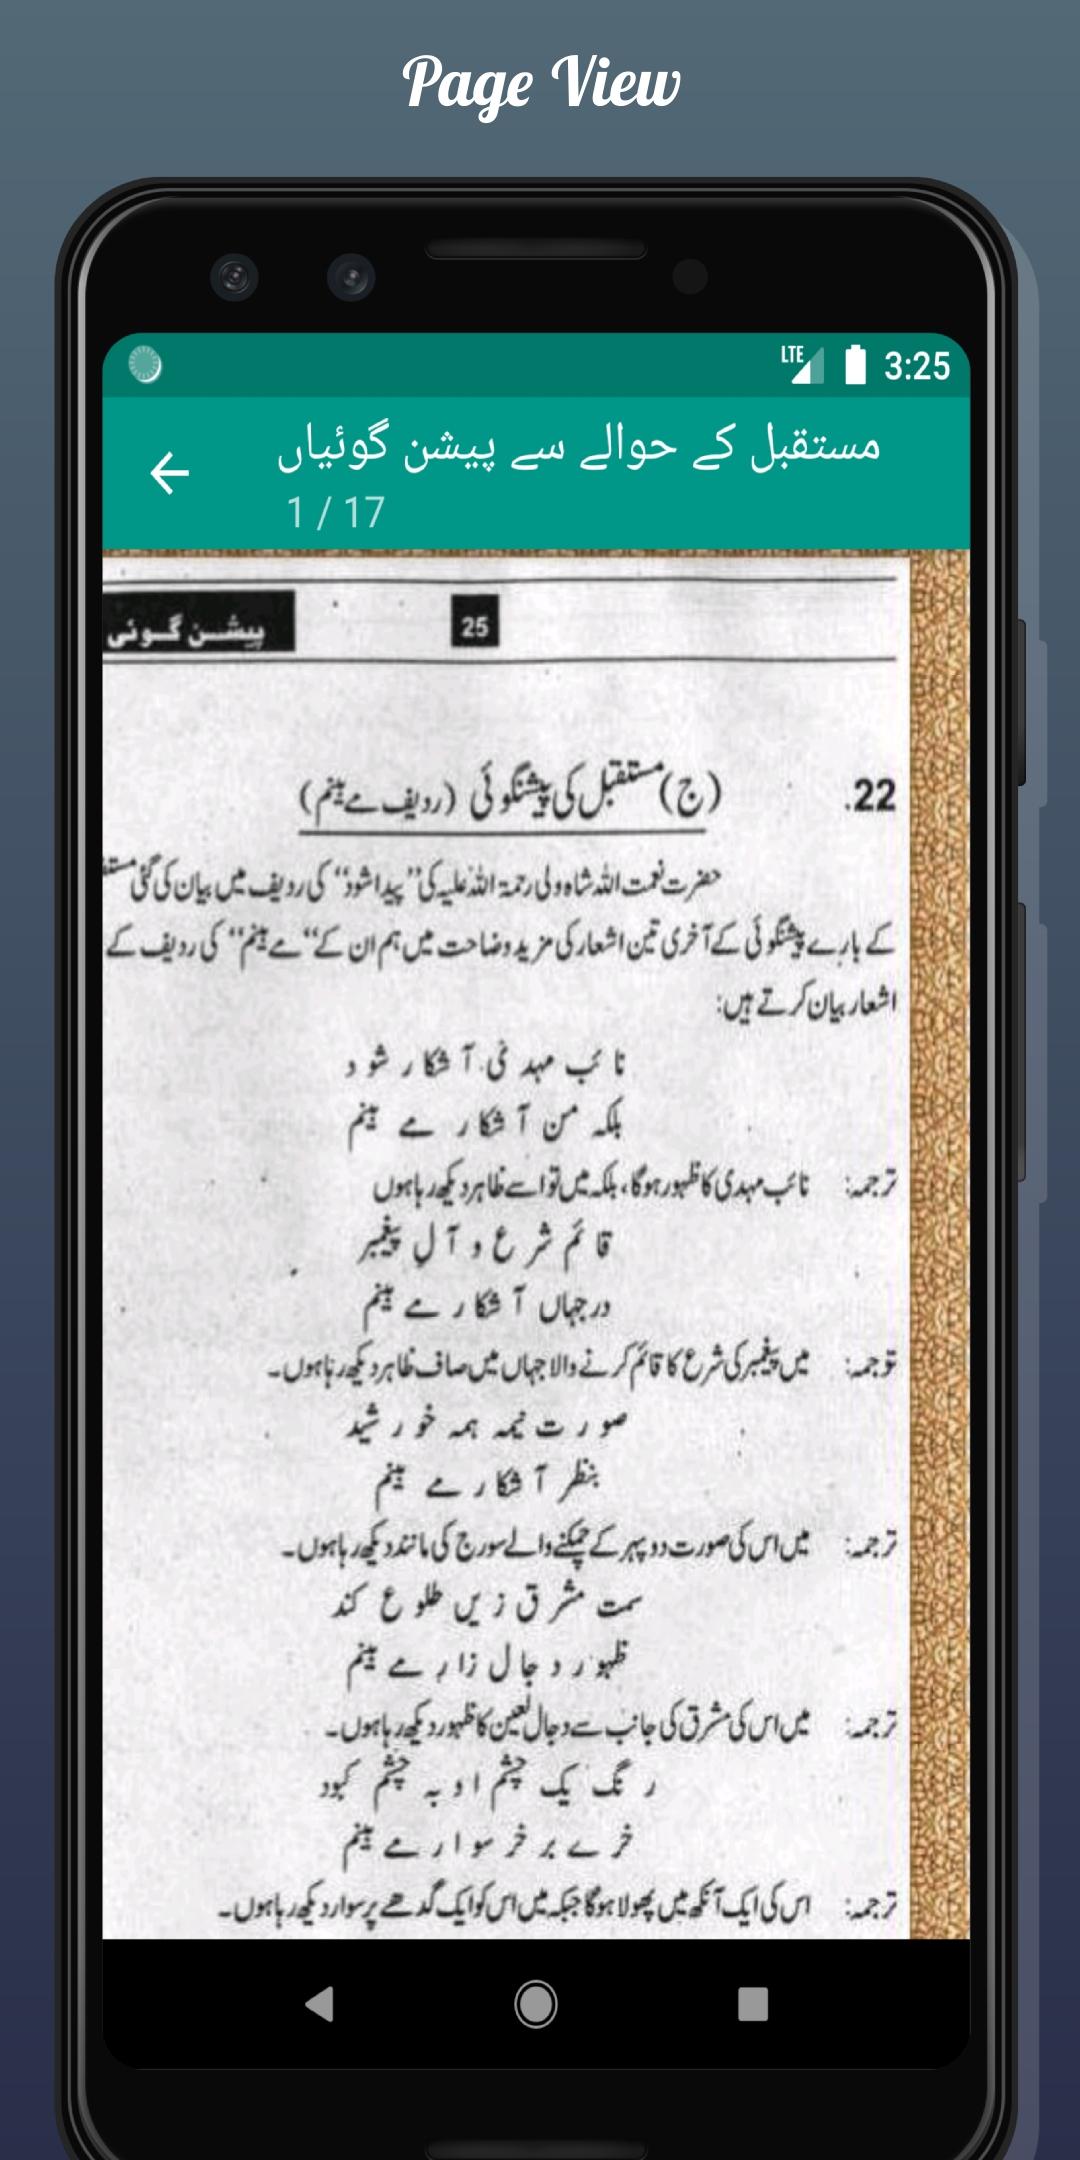 Page View
LTE 3:25
مستقبل کے حوالے سے پیشن گوئیاں
1 / 17
پیشن گوئی 25
22. (ج) مستقبل کی پیشنگوئی (ردیف مے بینم)
حضرت نعمت اللہ شاہ ولی رحمۃ اللہ علیہ کی ”پیدا شود“ کی ردیف میں بیان کی گئی
کے بارے پیشنگوئی کے آخری تین اشعار کی مزید وضاحت میں ہم ان کے ”مے بینم“ کی ردیف کے
اشعار بیان کرتے ہیں:
نائب مہدی آشکار شود
بلکہ من آشکار مے بینم
ترجمہ: نائب مہدی کا ظہور ہوگا، بلکہ میں تو اسے ظاہر دیکھ رہا ہوں
قائم شرع و آل پیغمبر
درجہاں آشکار مے بینم
ترجمہ: میں پیغمبر کی شرع کا قائم کرنے والا جہاں میں صاف ظاہر دیکھ رہا ہوں۔
صورت نیمہ ہمہ خورشید
بنظر آشکار مے بینم
ترجمہ: میں اس کی صورت دوپہر کے چمکنے والے سورج کی مانند دیکھ رہا ہوں۔
سمت مشرق زیں طلوع کند
ظہور دجال زار مے بینم
ترجمہ: میں اس کی مشرق کی جانب سے دجال لعین کا ظہور دیکھ رہا ہوں۔
رنگ یک چشم او بہ چشم کبود
خرے بر خر سوار مے بینم
ترجمہ: اس کی ایک آنکھ میں پھولا ہوگا جبکہ میں اس کو ایک گدھے پر سوار دیکھ رہا ہوں۔